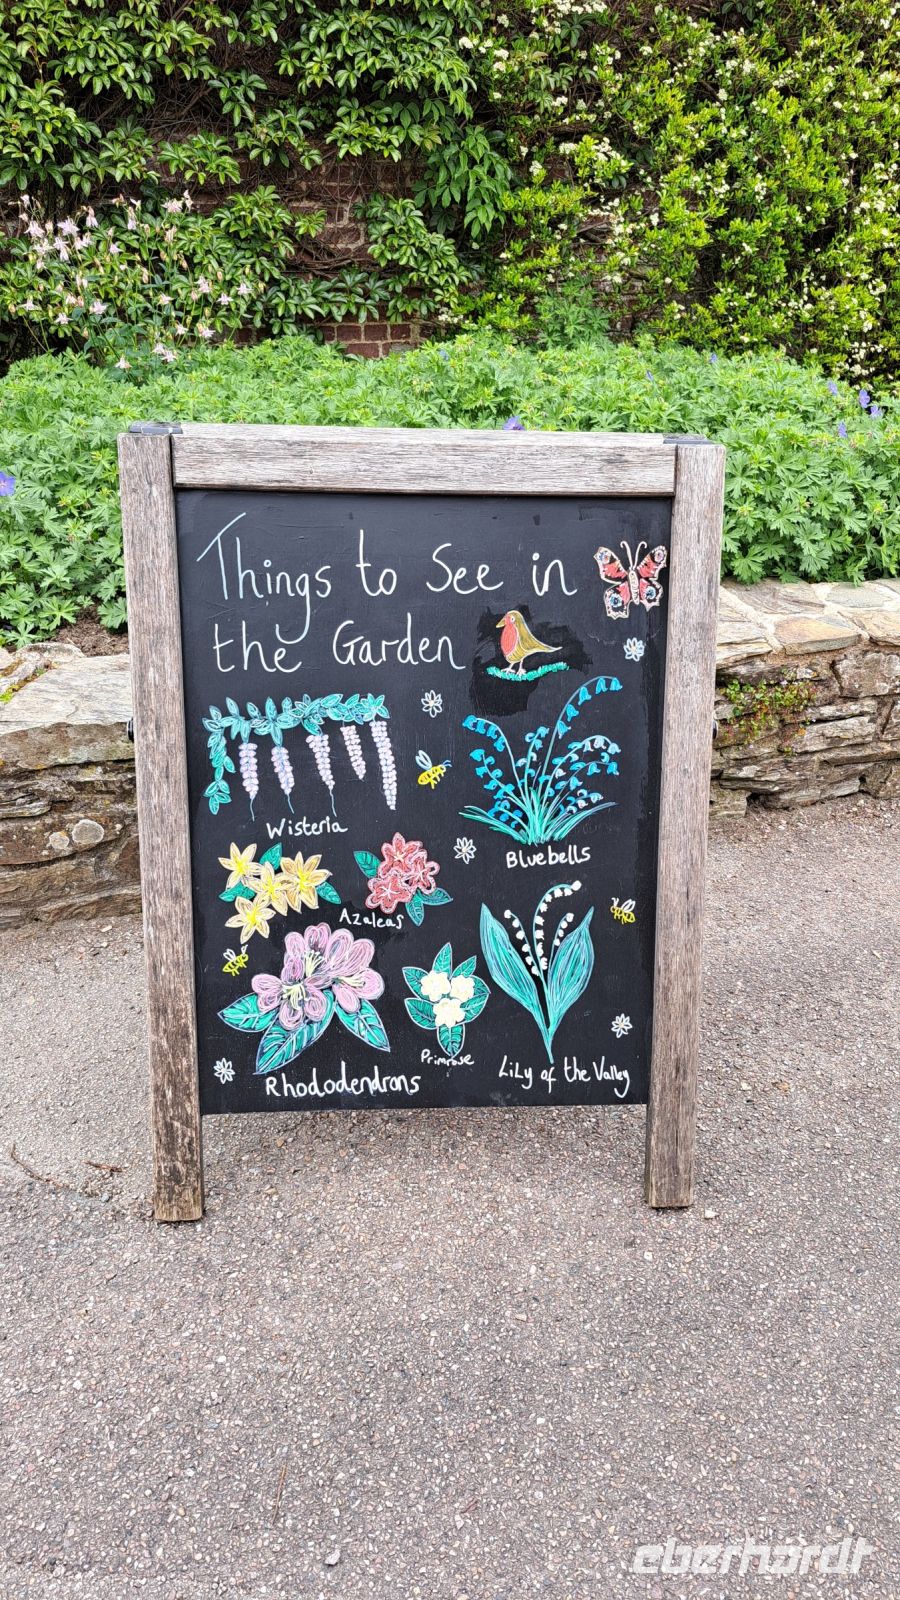 Things to See in
the Garden
Wisteria
Bluebells
Azaleas
Primrose
Rhododendrons
LiLy of the Valley
eberhardt